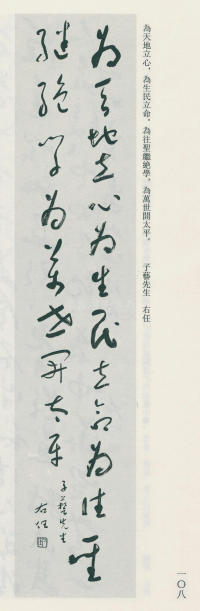 為天地立心，為生民立命，為往聖繼絶學，為萬世開太平。　子藝先生　右任
為天地立心為生民立命為往聖
繼絕學為萬世開太平
子藝先生
右任
一〇八